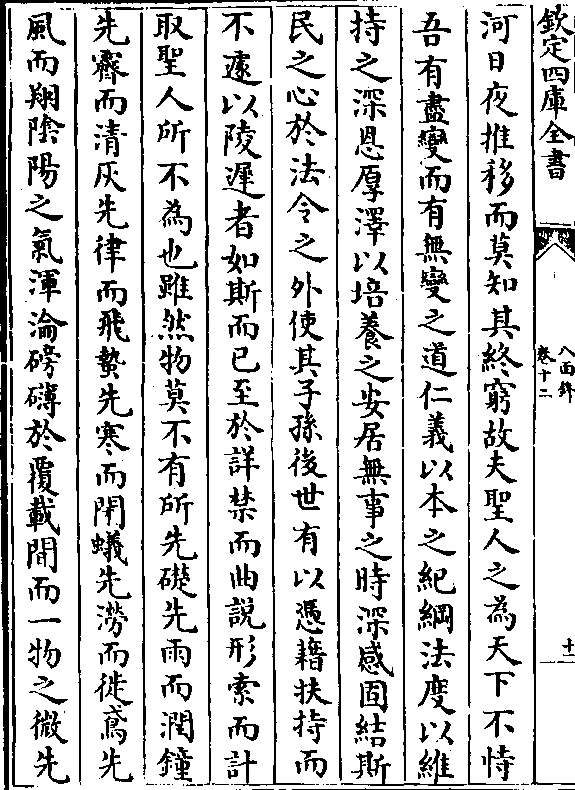 欽定四庫全書
八面鋒
卷十二
十
河日夜推移而莫知其終窮故夫聖人之為天下不恃
吾有盡變而有無變之道仁義以本之紀綱法度以維
持之深恩厚澤以培養之安居無事之時深感固結斯
民之心於法令之外使其子孫後世有以憑藉扶持而
不遽以陵遲者如斯而已至於詳禁而曲說形索而計
取聖人所不為也雖然物莫不有所先礎先雨而潤鐘
先霽而清灰先律而飛蟄先寒而閉蟻先澇而徙鳶先
風而翔陰陽之氣渾淪磅礴於覆載間而一物之微先